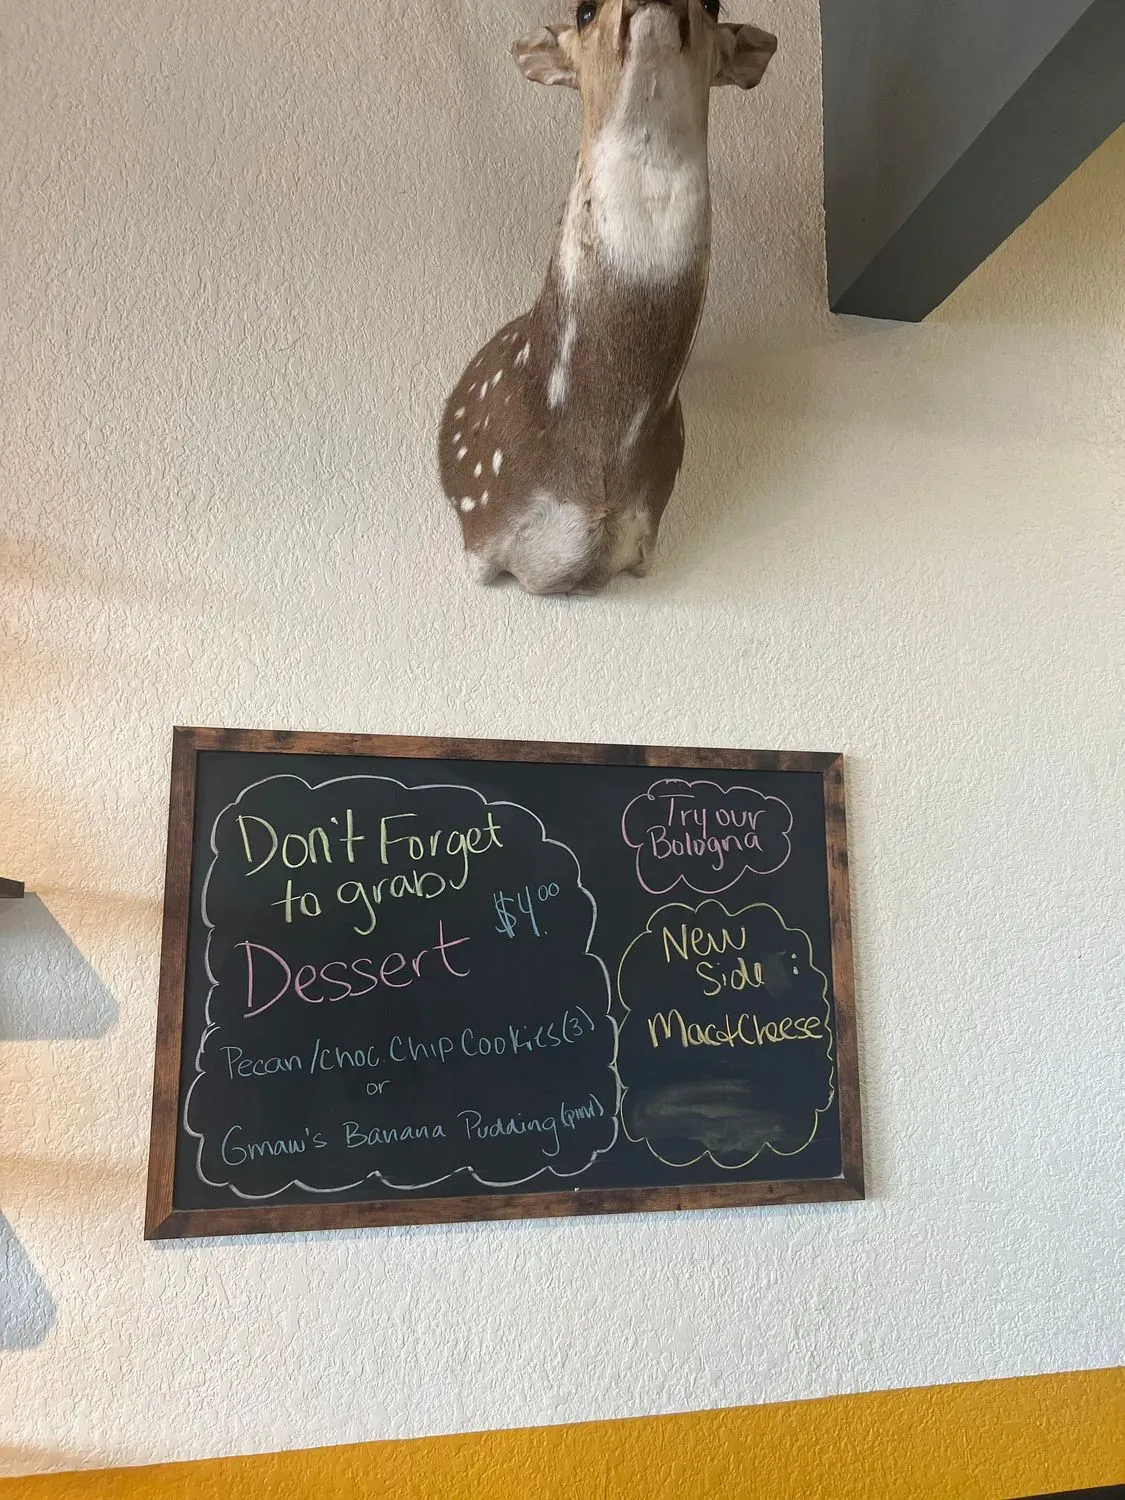 Don't Forget
to grab
$4.00
Dessert
Pecan/choc. Chip Cookies(3)
or
Gmaw's Banana Pudding(pint)
Try our
Bologna
New
Side :
Mac+Cheese